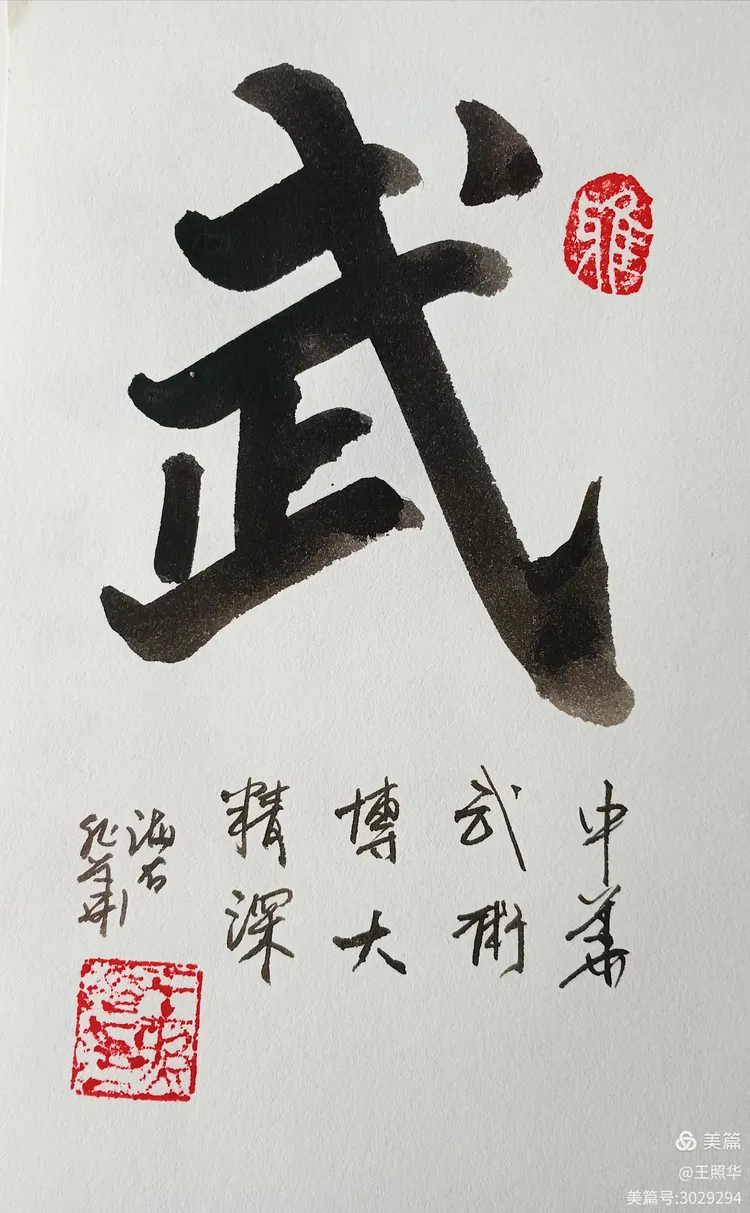 武
雅
中華
武術
博大
精深
美篇
@王照华
美篇号:3029294